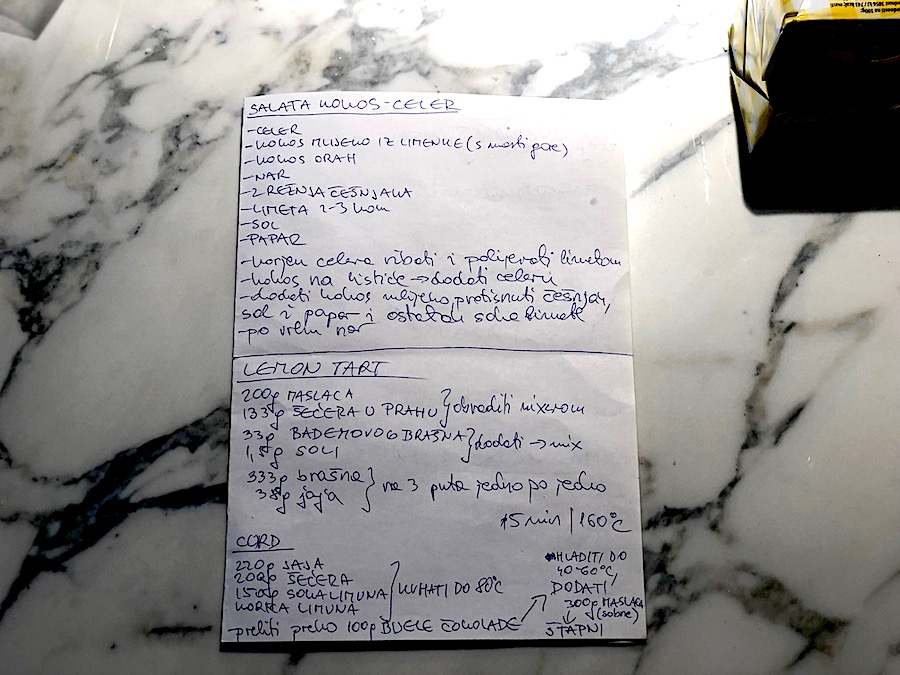 SALATA KOKOS-CELER
-CELER
-KOKOS MLIJEKO IZ LIMENKE (s masti gore)
-KOKOS ORAH
-NAR
-2 REŽNJA ČEŠNJAKA
-LIMETA 2-3 kom
-SOL
-PAPAR
-korjen celera ribati i polijevati limetom
-kokos na listiće → dodati celeru
-dodati kokos mlijeko, protisnuti češnjak,
sol i papar i ostatak soka limete
-po vrhu nar
LEMON TART
200g MASLACA
133g ŠEĆERA U PRAHU } obraditi mixerom
33g BADEMOVOG BRAŠNA
1,8g SOLI } dodati → mix
333g brašna
38g jaja } na 3 puta jedno po jedno
15 min | 160°C
CORD
220g JAJA
200g ŠEĆERA
150g SOKA LIMUNA
KORICA LIMUNA } KUHATI DO 80°C
preliti preko 100g BIJELE ČOKOLADE →
HLADITI DO
40-60°C,
DODATI
300g MASLACA
(sobne)
↓
ŠTAPNI